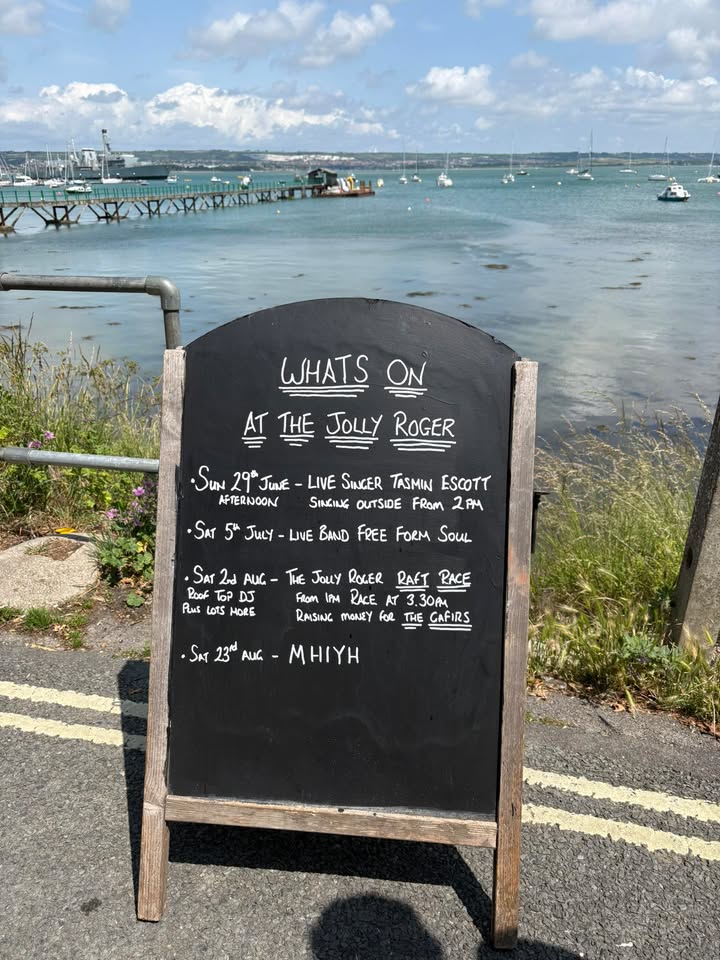 WHATS ON
AT THE JOLLY ROGER
• SUN 29th JUNE - LIVE SINGER TASMIN ESCOTT
AFTERNOON SINGING OUTSIDE FROM 2PM
• SAT 5th JULY - LIVE BAND FREE FORM SOUL
• SAT 2nd AUG - THE JOLLY ROGER RAFT RACE
ROOF TOP DJ FROM 1PM RACE AT 3.30AM
PLUS LOTS MORE RAISING MONEY FOR THE GAFIRS
• SAT 23rd AUG - MHIYH